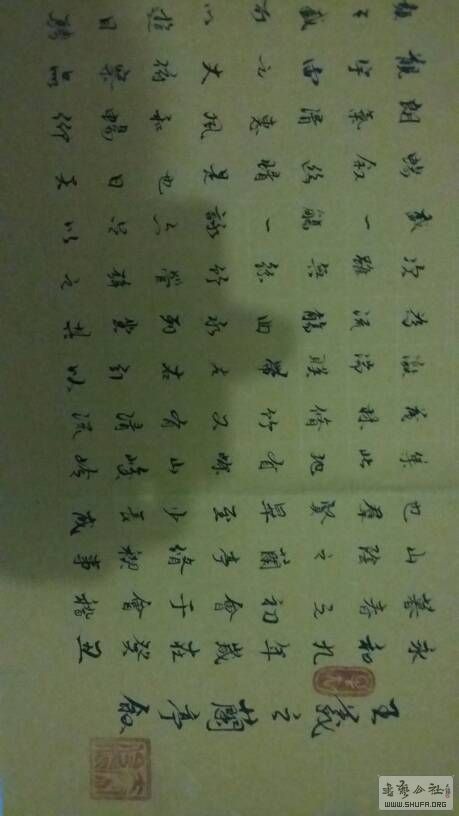 王羲之蘭亭敘
永和九年歲在癸丑
暮春之初會于會稽
山陰之蘭亭脩禊事
也羣賢畢至少長咸
集此地有崇山峻嶺
茂林脩竹又有清流
激湍暎帶左右引以
為流觴曲水列坐其
次雖無絲竹管弦之
盛一觴一詠亦足以
暢敘幽情是日也天
朗氣清惠風和暢仰
觀宇宙之大俯察品
類之盛所以遊目騁
WWW.SHUFA.ORG